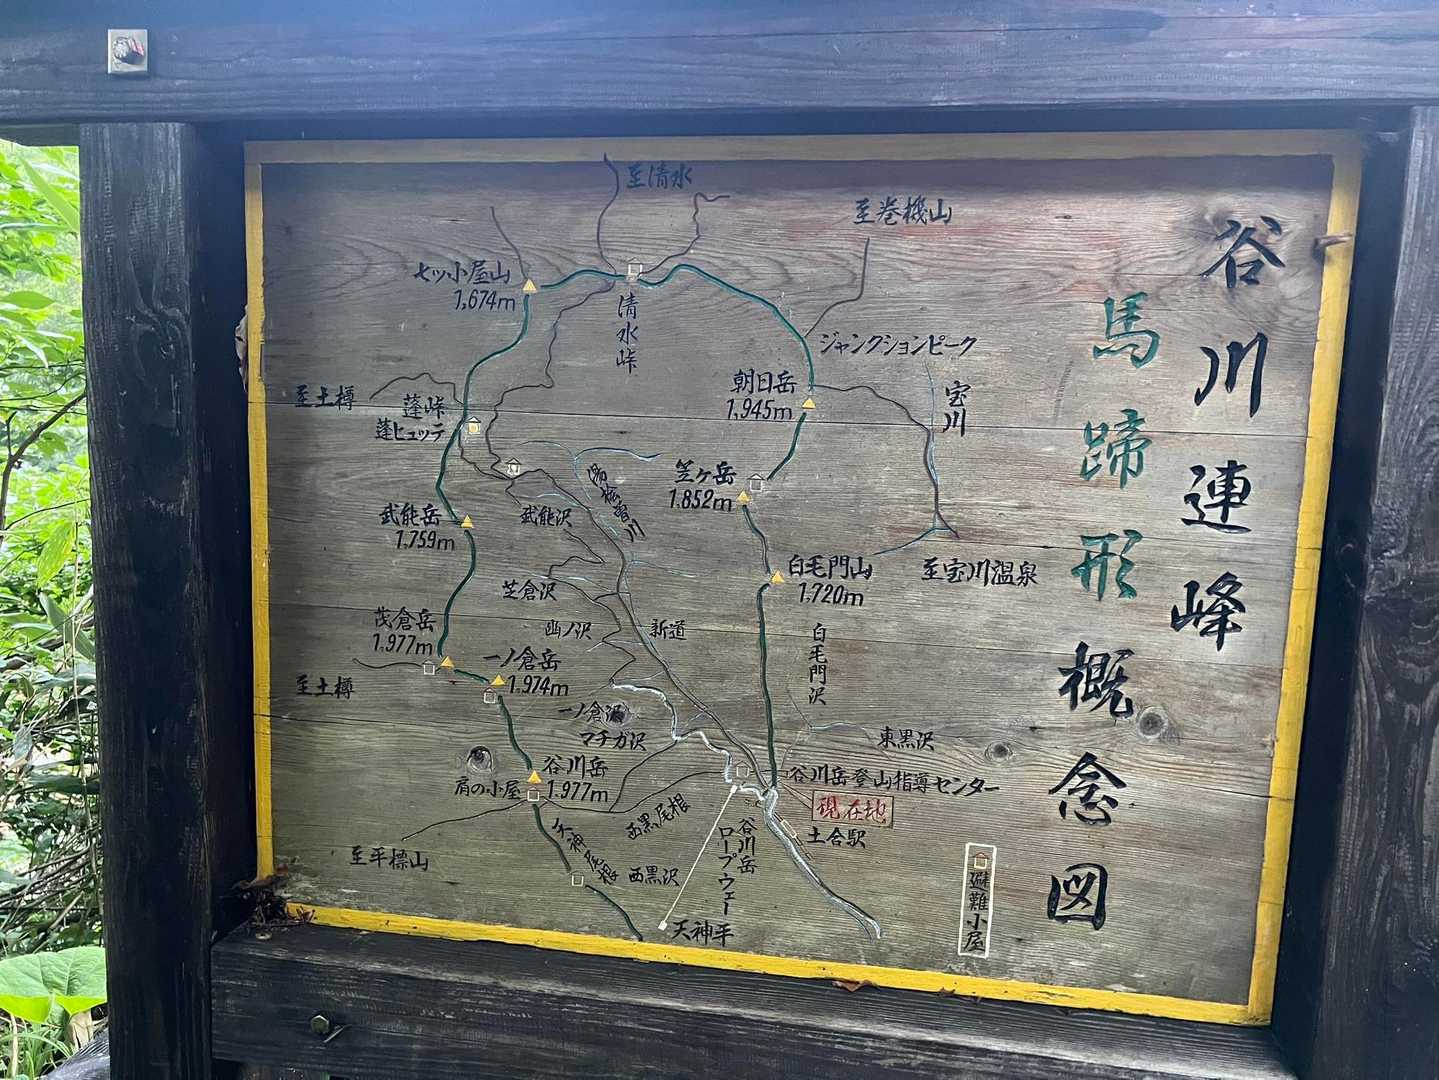 谷川連峰
馬蹄形概念図
至清水
至巻機山
七ッ小屋山
1,674m
清水峠
ジャンクションピーク
朝日岳
1,945m
宝川
至土樽
蓬峠
蓬ヒュッテ
笠ヶ岳
1.852m
湯桧曽川
武能岳
1,759m
武能沢
白毛門山
1,720m
至宝川温泉
芝倉沢
茂倉岳
1,977m
幽ノ沢
新道
白毛門沢
一ノ倉岳
1,974m
至土樽
一ノ倉沢
マチガ沢
東黒沢
谷川岳
1.977m
肩の小屋
谷川岳登山指導センター
現在地
土合駅
西黒尾根
天神尾根
西黒沢
谷川岳
ロープウェー
至平標山
天神平
避難小屋